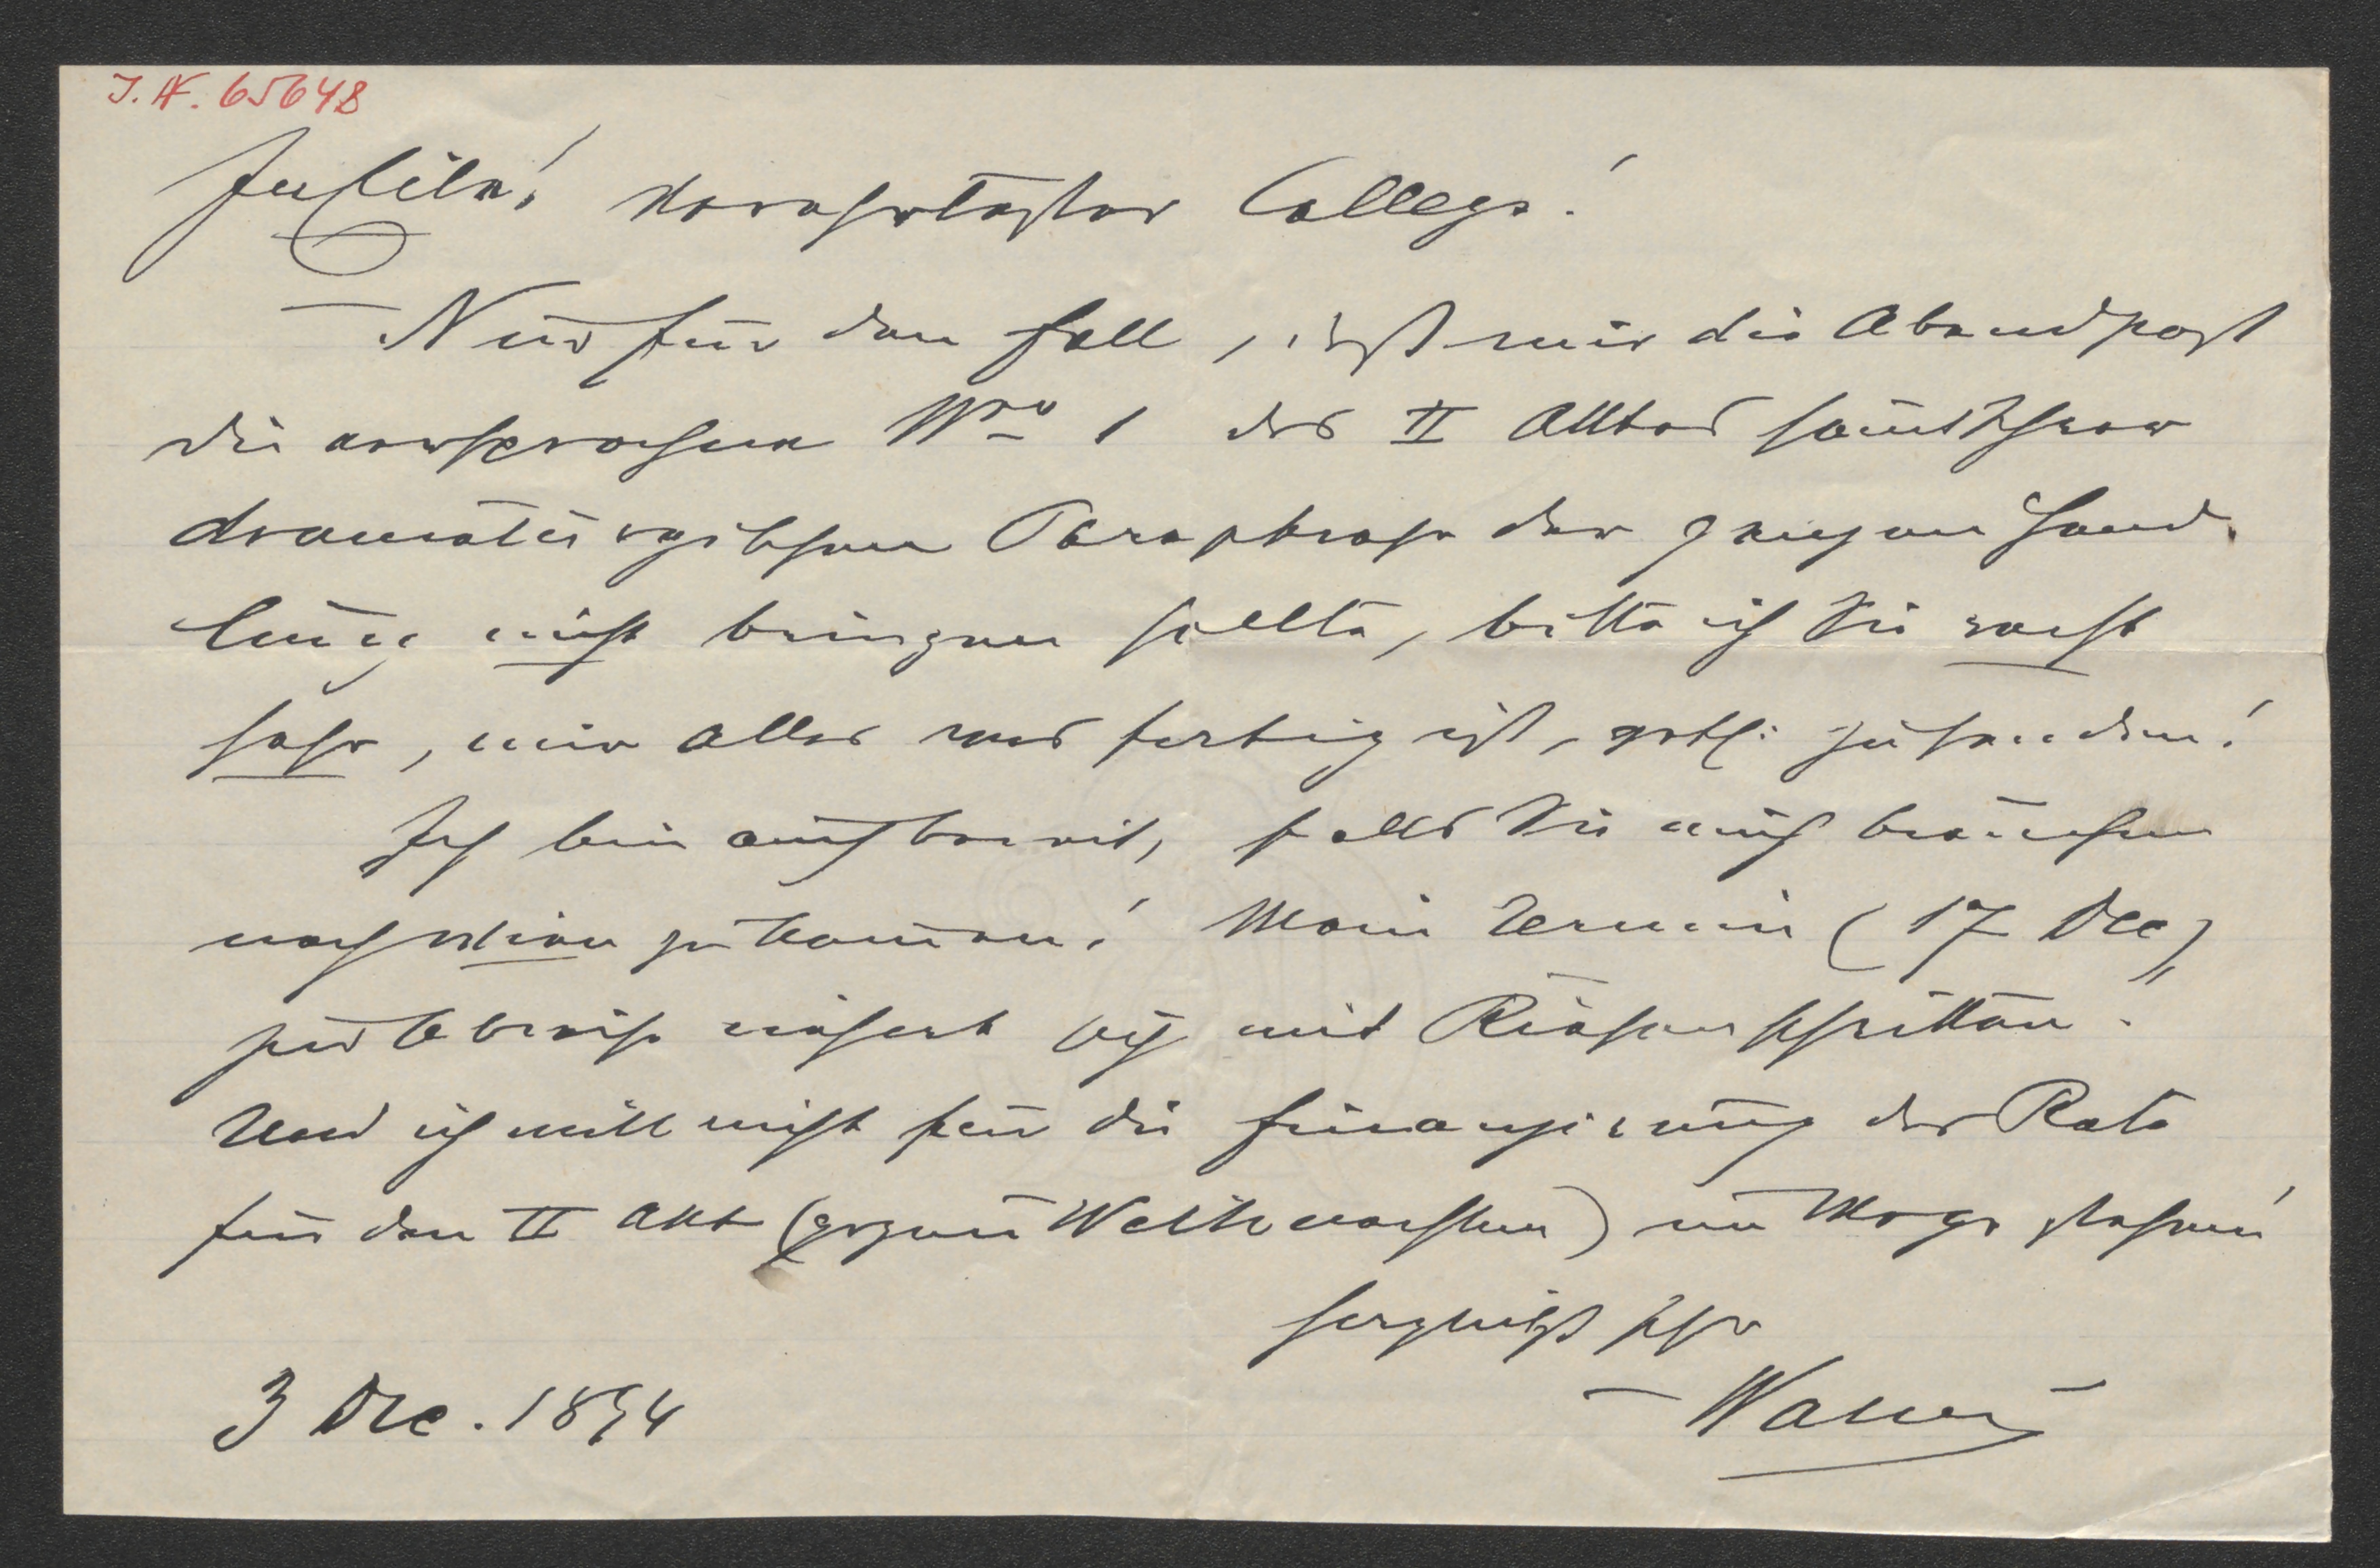 I. N. 65648
Jubilar! Verehrtester College!
Nur für den Fall, daß mir die Abendpost
die versprochene Nro 1 des II Aktes sammt Ihrer
dramaturgischen Paraphrase der ganzen Hand-
lung nicht bringen sollte, bitte ich Sie recht
sehr, mir alles was fertig ist, gefl: zu senden!
Ich bin auch bereit, falls Sie mich brauchen
nach Wien zu kommen! Mein Termin (17 Dec)
nähert sich mit Riesenschritten!
Und ich will nicht für die Finanzirung der Rate
für den II Akt (gegen Weihnachten) im Wege stehen!
herzlichst Ihr
3 Dec. 1894